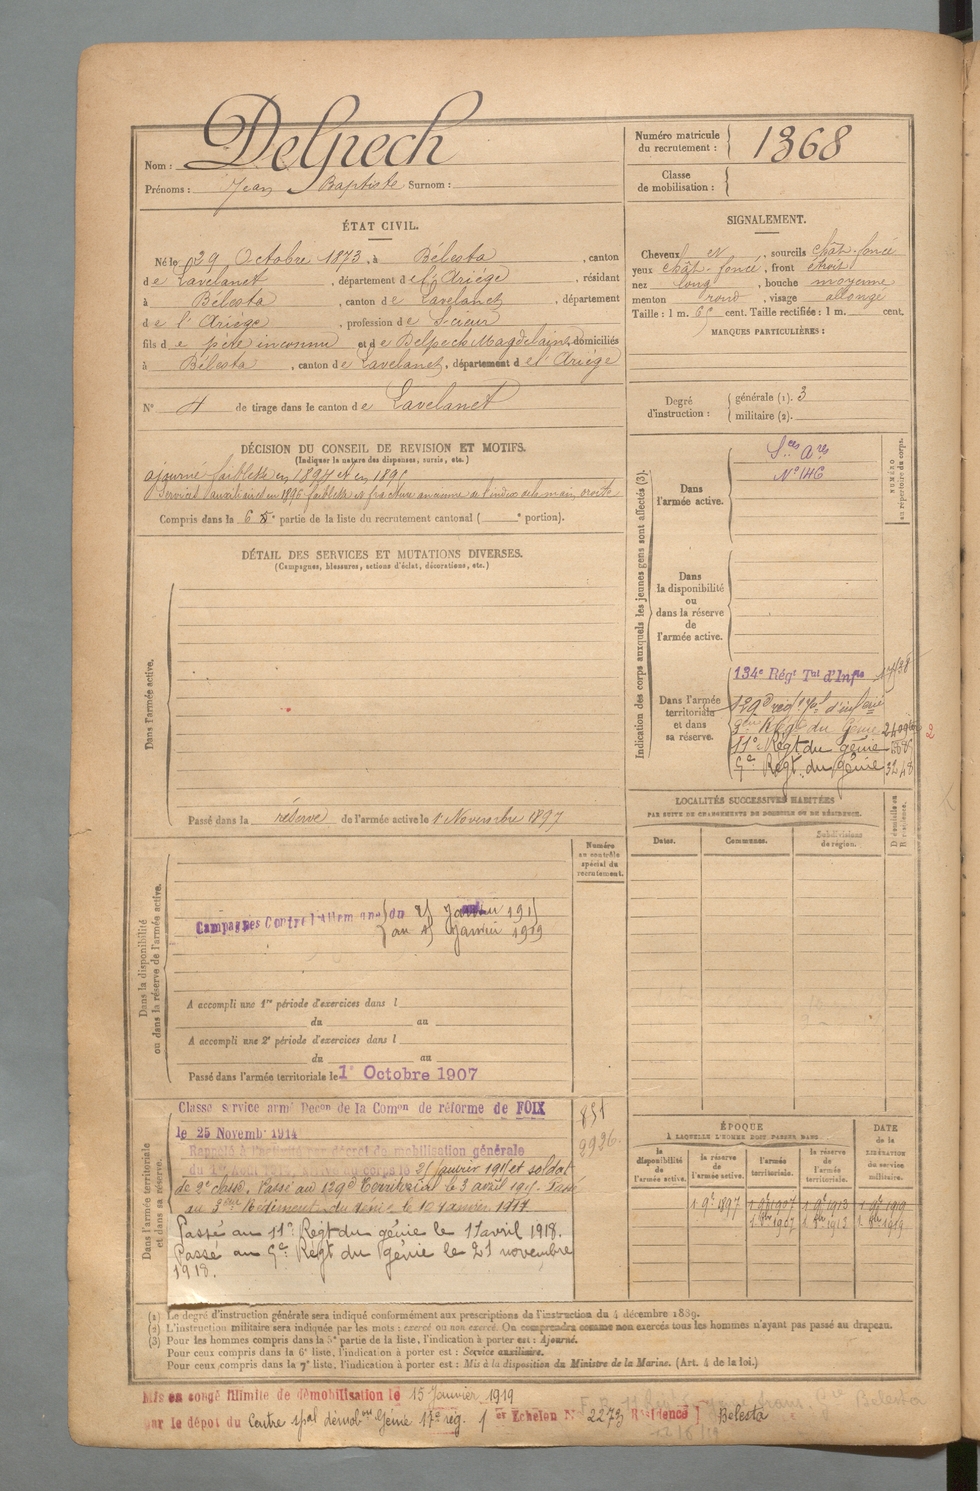 Nom : Delpech
Prénoms : Jean Baptiste Surnom :
Numéro matricule du recrutement : 1368
Classe de mobilisation :
ÉTAT CIVIL.
Né le 29 Octobre 1873, à Bélesta, canton
de Lavelanet, département de l'Ariège, résidant
à Bélesta, canton de Lavelanet, département
de l'Ariège, profession de Scieur
fils de père inconnu et de Delpech Magdelaine, domiciliés
à Bélesta, canton de Lavelanet, département de l'Ariège
N° 4 de tirage dans le canton de Lavelanet
SIGNALEMENT.
Cheveux et, sourcils chât-foncé
yeux chât-foncé, front étroit
nez long, bouche moyenne
menton rond, visage allongé
Taille : 1 m. 65 cent. Taille rectifiée : 1 m. cent.
MARQUES PARTICULIÈRES :
Degré d'instruction : générale (1). 3
militaire (2).
DÉCISION DU CONSEIL DE REVISION ET MOTIFS.
(Indiquer la nature des dispenses, sursis, etc.)
ajourné faiblesse en 1894 et en 1895
Service auxiliaire en 1896 faiblesse et fracture ancienne de l'index de la main droite
Compris dans la 6e partie de la liste du recrutement cantonal ( e portion).
DÉTAIL DES SERVICES ET MUTATIONS DIVERSES.
(Campagnes, blessures, actions d'éclat, décorations, etc.)
Dans l'armée active.
Passé dans la réserve de l'armée active le 1 Novembre 1897
Indication des corps auxquels les jeunes gens sont affectés (3).
NUMÉRO au répertoire du corps.
Dans l'armée active.
Sces Ares
N° 146
Dans la disponibilité ou dans la réserve de l'armée active.
Dans l'armée territoriale et dans sa réserve.
134e Régt Tal d'Infie
129e régt Tal d'infanie
3ème Régt du Génie
11e Régt du génie
9e Régt du génie 3248
LOCALITÉS SUCCESSIVES HABITÉES
PAR SUITE DE CHANGEMENTS DE DOMICILE OU DE RÉSIDENCE.
Dates.
Communes.
Subdivisions de région.
D. domicile ou R. résidence.
Dans la disponibilité ou dans la réserve de l'armée active.
Numéro au contrôle spécial du recrutement.
Campagnes Contre l'Allemagne du Janvier 1915
au Janvier 1919
A accompli une 1re période d'exercices dans l
du au
A accompli une 2e période d'exercices dans l
du au
Passé dans l'armée territoriale le 1er Octobre 1907
Dans l'armée territoriale et dans sa réserve.
Classé service armé Décon de la Comon de réforme de FOIX
le 25 Novembre 1914
Rappelé à l'activité décret de mobilisation générale
du 1er Août 1914, arrivé au corps le Janvier 1915 et soldat
de 2e classe. Passé au 129e Territorial le 3 avril 1915. Passé
au 3ème Régiment du génie le 10 janvier 1917
Passé au 11e Régt du génie le 1 avril 1918.
Passé au 9e Régt du Génie le 21 novembre
1918.
851
9936.
ÉPOQUE
À LAQUELLE L'HOMME DOIT PASSER DANS
la disponibilité de l'armée active.
la réserve de l'armée active.
l'armée territoriale.
la réserve de l'armée territoriale.
DATE de la LIBÉRATION du service militaire.
1 9e 1897 1 9e 1907 1 9e 1913 1 9e 1919
1 8bre 1907 1 8bre 1913 1 8bre 1919
(1) Le degré d'instruction générale sera indiqué conformément aux prescriptions de l'instruction du 4 décembre 1889.
(2) L'instruction militaire sera indiquée par les mots : exercé ou non exercé. On comprendra comme non exercés tous les hommes n'ayant pas passé au drapeau.
(3) Pour les hommes compris dans la 5e partie de la liste, l'indication à porter est : Ajourné.
Pour ceux compris dans la 6e liste, l'indication à porter est : Service auxiliaire.
Pour ceux compris dans la 7e liste, l'indication à porter est : Mis à la disposition du Ministre de la Marine. (Art. 4 de la loi.)
Mis en congé illimité de démobilisation le 15 Janvier 1919
par le dépôt du Centre démobon Génie 17e rég. 1er Echelon N° 2273 Résidence Belesta
Belesta